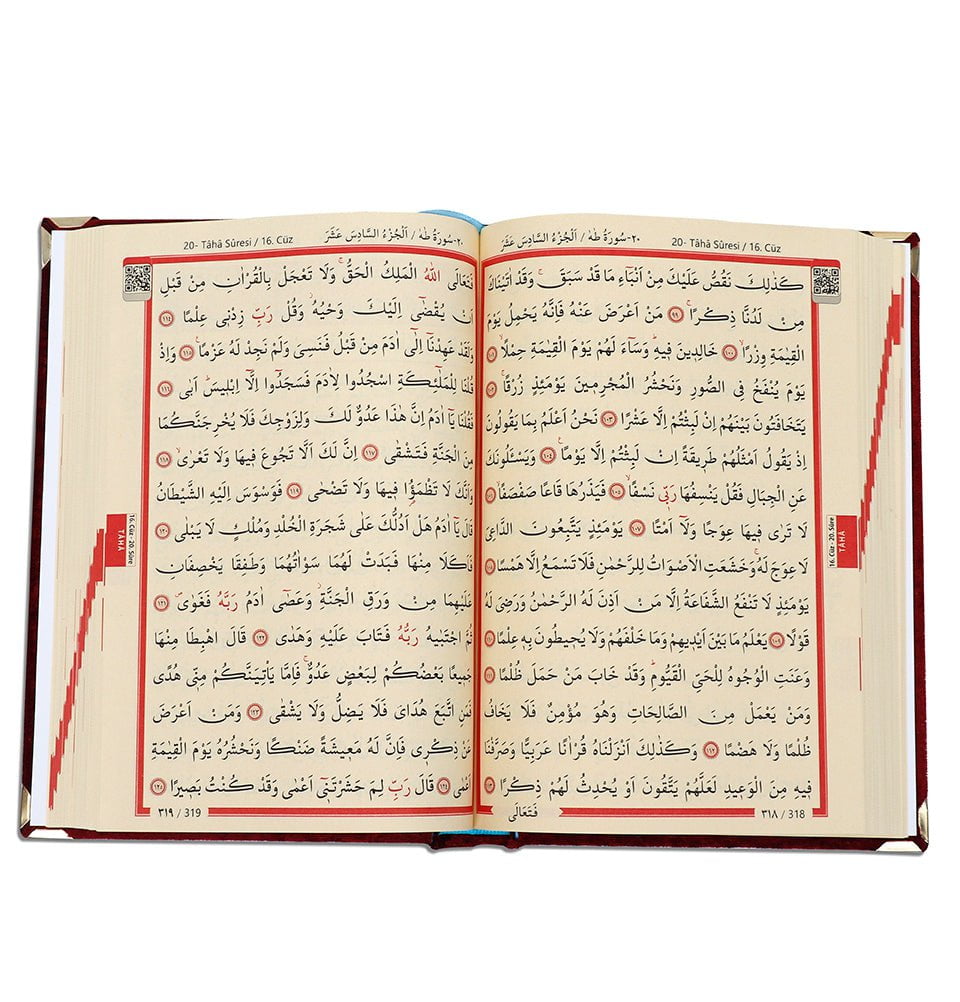 20- Tâhâ Sûresi / 16. Cüz ٢٠-سُورَةُ طٰهٰ / اَلْجُزْءُ السَّادِسَ عَشَرَ
كَذٰلِكَ نَقُصُّ عَلَيْكَ مِنْ اَنْبَٓاءِ مَا قَدْ سَبَقَۚ وَقَدْ اٰتَيْنَاكَ
مِنْ لَدُنَّا ذِكْرًاۚ ﴿٩٩﴾ مَنْ اَعْرَضَ عَنْهُ فَاِنَّهُ يَحْمِلُ يَوْمَ
الْقِيٰمَةِ وِزْرًاۙ ﴿١٠٠﴾ خَالِدِينَ فِيهِۜ وَسَٓاءَ لَهُمْ يَوْمَ الْقِيٰمَةِ حِمْلًاۙ ﴿١٠١﴾
يَوْمَ يُنْفَخُ فِي الصُّورِ وَنَحْشُرُ الْمُجْرِمِينَ يَوْمَئِذٍ زُرْقًاۚ ﴿١٠٢﴾
يَتَخَافَتُونَ بَيْنَهُمْ اِنْ لَبِثْتُمْ اِلَّا عَشْرًا ﴿١٠٣﴾ نَحْنُ اَعْلَمُ بِمَا يَقُولُونَ
اِذْ يَقُولُ اَمْثَلُهُمْ طَرِيقَةً اِنْ لَبِثْتُمْ اِلَّا يَوْمًاۚ ﴿١٠٤﴾ وَيَسْـَٔلُونَكَ
عَنِ الْجِبَالِ فَقُلْ يَنْسِفُهَا رَبِّي نَسْفًاۙ ﴿١٠٥﴾ فَيَذَرُهَا قَاعًا صَفْصَفًاۙ ﴿١٠٦﴾
لَا تَرٰى فِيهَا عِوَجًا وَلَٓا اَمْتًاۜ ﴿١٠٧﴾ يَوْمَئِذٍ يَتَّبِعُونَ الدَّاعِيَ
لَا عِوَجَ لَهُۚ وَخَشَعَتِ الْاَصْوَاتُ لِلرَّحْمٰنِ فَلَا تَسْمَعُ اِلَّا هَمْسًا ﴿١٠٨﴾
يَوْمَئِذٍ لَا تَنْفَعُ الشَّفَاعَةُ اِلَّا مَنْ اَذِنَ لَهُ الرَّحْمٰنُ وَرَضِيَ لَهُ
قَوْلًا ﴿١٠٩﴾ يَعْلَمُ مَا بَيْنَ اَيْدِيهِمْ وَمَا خَلْفَهُمْ وَلَا يُحِيطُونَ بِهِ عِلْمًا ﴿١١٠﴾
وَعَنَتِ الْوُجُوهُ لِلْحَيِّ الْقَيُّومِۜ وَقَدْ خَابَ مَنْ حَمَلَ ظُلْمًا ﴿١١١﴾
وَمَنْ يَعْمَلْ مِنَ الصَّالِحَاتِ وَهُوَ مُؤْمِنٌ فَلَا يَخَافُ
ظُلْمًا وَلَا هَضْمًا ﴿١١٢﴾ وَكَذٰلِكَ اَنْزَلْنَاهُ قُرْاٰنًا عَرَبِيًّا وَصَرَّفْنَا
فِيهِ مِنَ الْوَعِيدِ لَعَلَّهُمْ يَتَّقُونَ اَوْ يُحْدِثُ لَهُمْ ذِكْرًا ﴿١١٣﴾
فَتَعَالَى
٣١٨ / 318
16. Cüz - 20. Sûre
TÂHÂ
20- Tâhâ Sûresi / 16. Cüz ٢٠-سُورَةُ طٰهٰ / اَلْجُزْءُ السَّادِسَ عَشَرَ
فَتَعَالَى اللّٰهُ الْمَلِكُ الْحَقُّۚ وَلَا تَعْجَلْ بِالْقُرْاٰنِ مِنْ قَبْلِ
اَنْ يُقْضٰٓى اِلَيْكَ وَحْيُهُۘ وَقُلْ رَبِّ زِدْنِي عِلْمًا ﴿١١٤﴾
وَلَقَدْ عَهِدْنَٓا اِلٰٓى اٰدَمَ مِنْ قَبْلُ فَنَسِيَ وَلَمْ نَجِدْ لَهُ عَزْمًا۟ ﴿١١٥﴾ وَاِذْ
قُلْنَا لِلْمَلٰٓئِكَةِ اسْجُدُوا لِاٰدَمَ فَسَجَدُٓوا اِلَّٓا اِبْلِيسَۜ اَبٰى ﴿١١٦﴾
فَقُلْنَا يَٓا اٰدَمُ اِنَّ هٰذَا عَدُوٌّ لَكَ وَلِزَوْجِكَ فَلَا يُخْرِجَنَّكُمَا
مِنَ الْجَنَّةِ فَتَشْقٰى ﴿١١٧﴾ اِنَّ لَكَ اَلَّا تَجُوعَ فِيهَا وَلَا تَعْرٰىۙ ﴿١١٨﴾
وَاَنَّكَ لَا تَظْمَؤُ۬ا فِيهَا وَلَا تَضْحٰى ﴿١١٩﴾ فَوَسْوَسَ اِلَيْهِ الشَّيْطَانُ
قَالَ يَٓا اٰدَمُ هَلْ اَدُلُّكَ عَلٰى شَجَرَةِ الْخُلْدِ وَمُلْكٍ لَا يَبْلٰى ﴿١٢٠﴾
فَاَكَلَا مِنْهَا فَبَدَتْ لَهُمَا سَوْاٰتُهُمَا وَطَفِقَا يَخْصِفَانِ
عَلَيْهِمَا مِنْ وَرَقِ الْجَنَّةِۘ وَعَصٰٓى اٰدَمُ رَبَّهُ فَغَوٰىۖ ﴿١٢١﴾
ثُمَّ اجْتَبٰيهُ رَبُّهُ فَتَابَ عَلَيْهِ وَهَدٰى ﴿١٢٢﴾ قَالَ اهْبِطَا مِنْهَا
جَمِيعًا بَعْضُكُمْ لِبَعْضٍ عَدُوٌّۚ فَاِمَّا يَأْتِيَنَّكُمْ مِنِّي هُدًى
فَمَنِ اتَّبَعَ هُدَايَ فَلَا يَضِلُّ وَلَا يَشْقٰى ﴿١٢٣﴾ وَمَنْ اَعْرَضَ
عَنْ ذِكْرِي فَاِنَّ لَهُ مَعِيشَةً ضَنْكًا وَنَحْشُرُهُ يَوْمَ الْقِيٰمَةِ
اَعْمٰى ﴿١٢٤﴾ قَالَ رَبِّ لِمَ حَشَرْتَنِٓي اَعْمٰى وَقَدْ كُنْتُ بَصِيرًا ﴿١٢٥﴾
٣١٩ / 319
16. Cüz - 20. Sûre
TÂHÂ